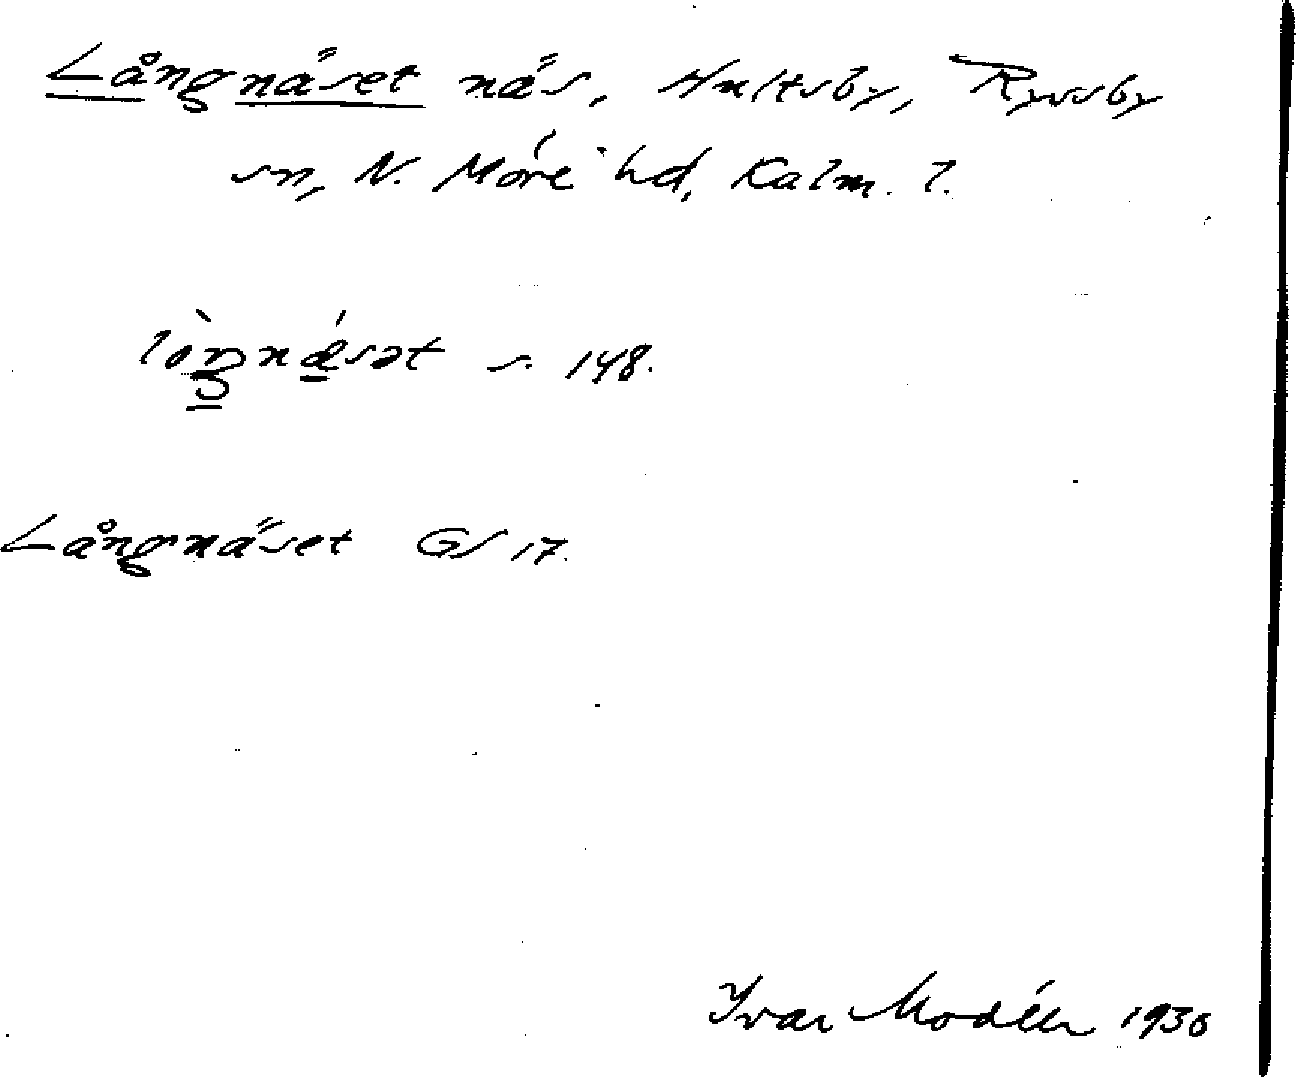 Långnäset näs, Hultsby, Ryssby
sn, N. Möre hd, Kalm. l.
lòŋnǽsət s. 148.
Långnäset GS 17.
Ivar Modéer 1930